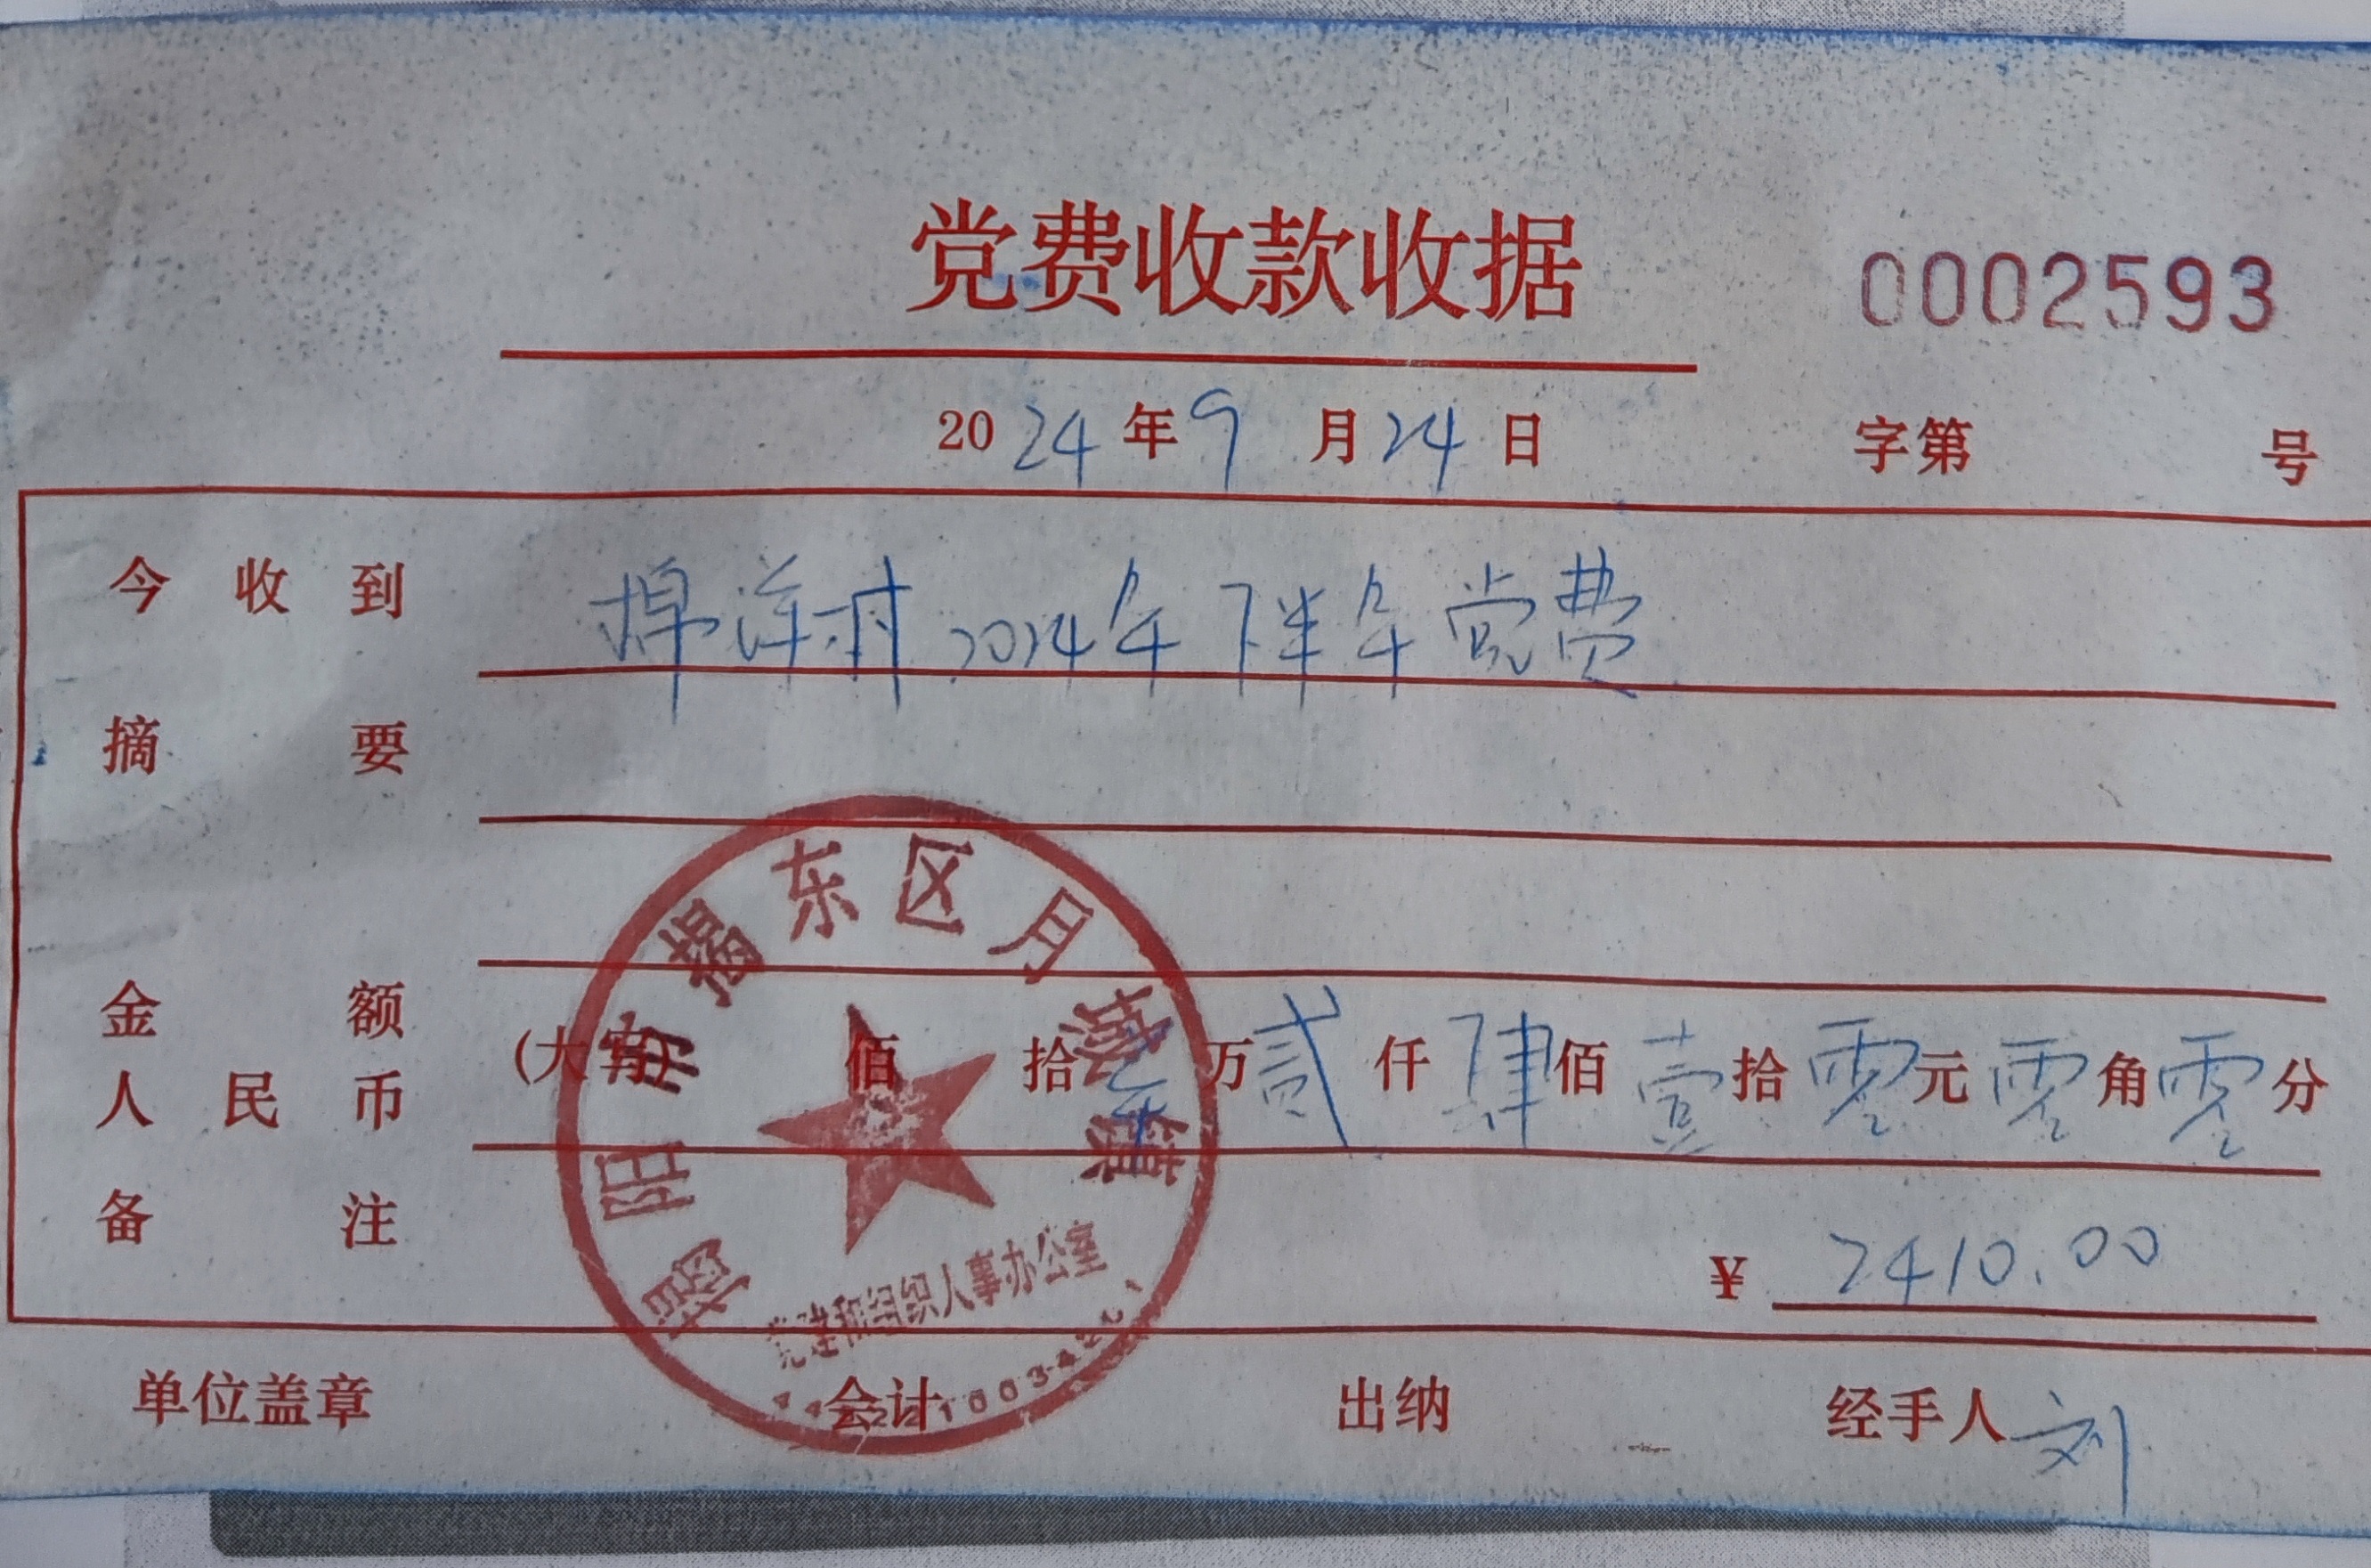 党费收款收据
0002593
2024年9月24日 字第 号
今收到 棉洋村2024年下半年党费
摘要
金额
人民币 (大写) 佰 拾 万贰仟肆佰壹拾零元零角零分
备注
¥ 2410.00
单位盖章 会计 出纳 经手人 刘
揭阳市揭东区月城镇
党建和组织人事办公室